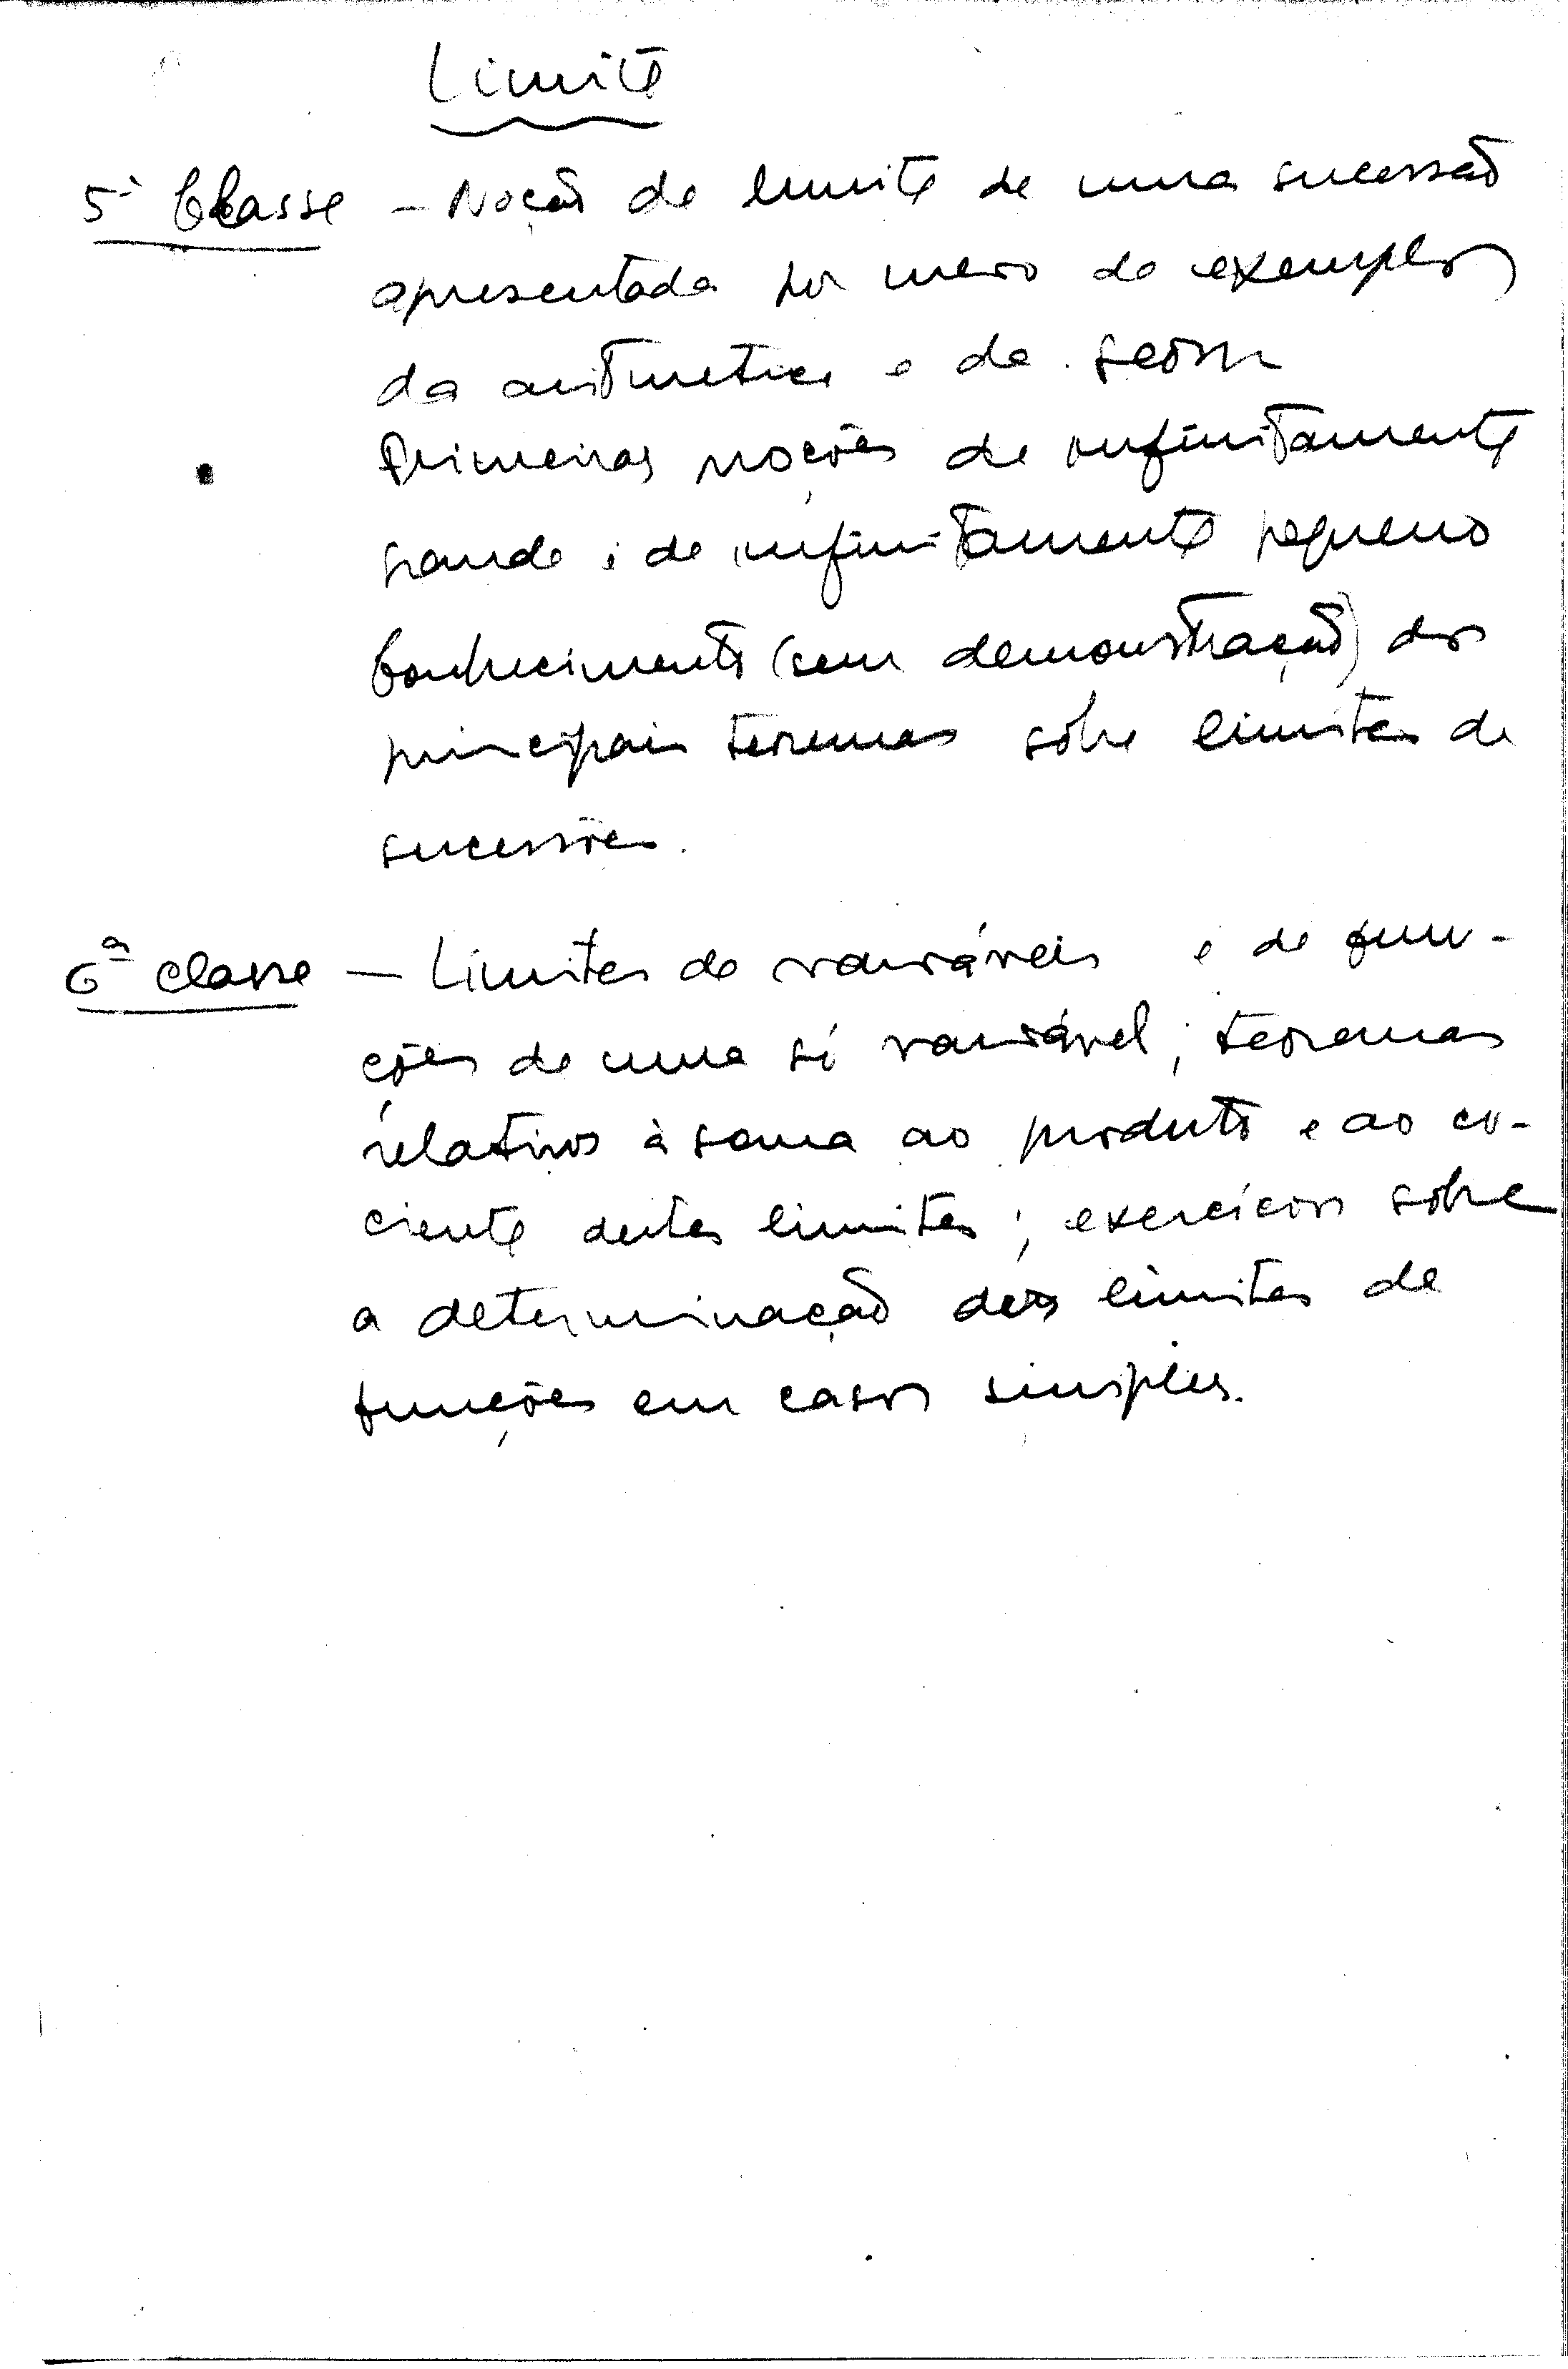 Limite
5ª Classe – Noção de limite de uma sucessão
apresentada por meio de exemplos
da aritmetica e da geom
Primeiras noções de infinitamente
grande e de infinitamente pequeno
Conhecimento (sem demonstração) dos
principais teoremas sôbre limites de
sucessões.
6ª classe – Limites de variáveis e de fun-
ções de uma só variável; teoremas
relativos à soma ao produto e ao co-
ciente destes limites; exercícios sobre
a determinação dos limites de
funções em casos simples.